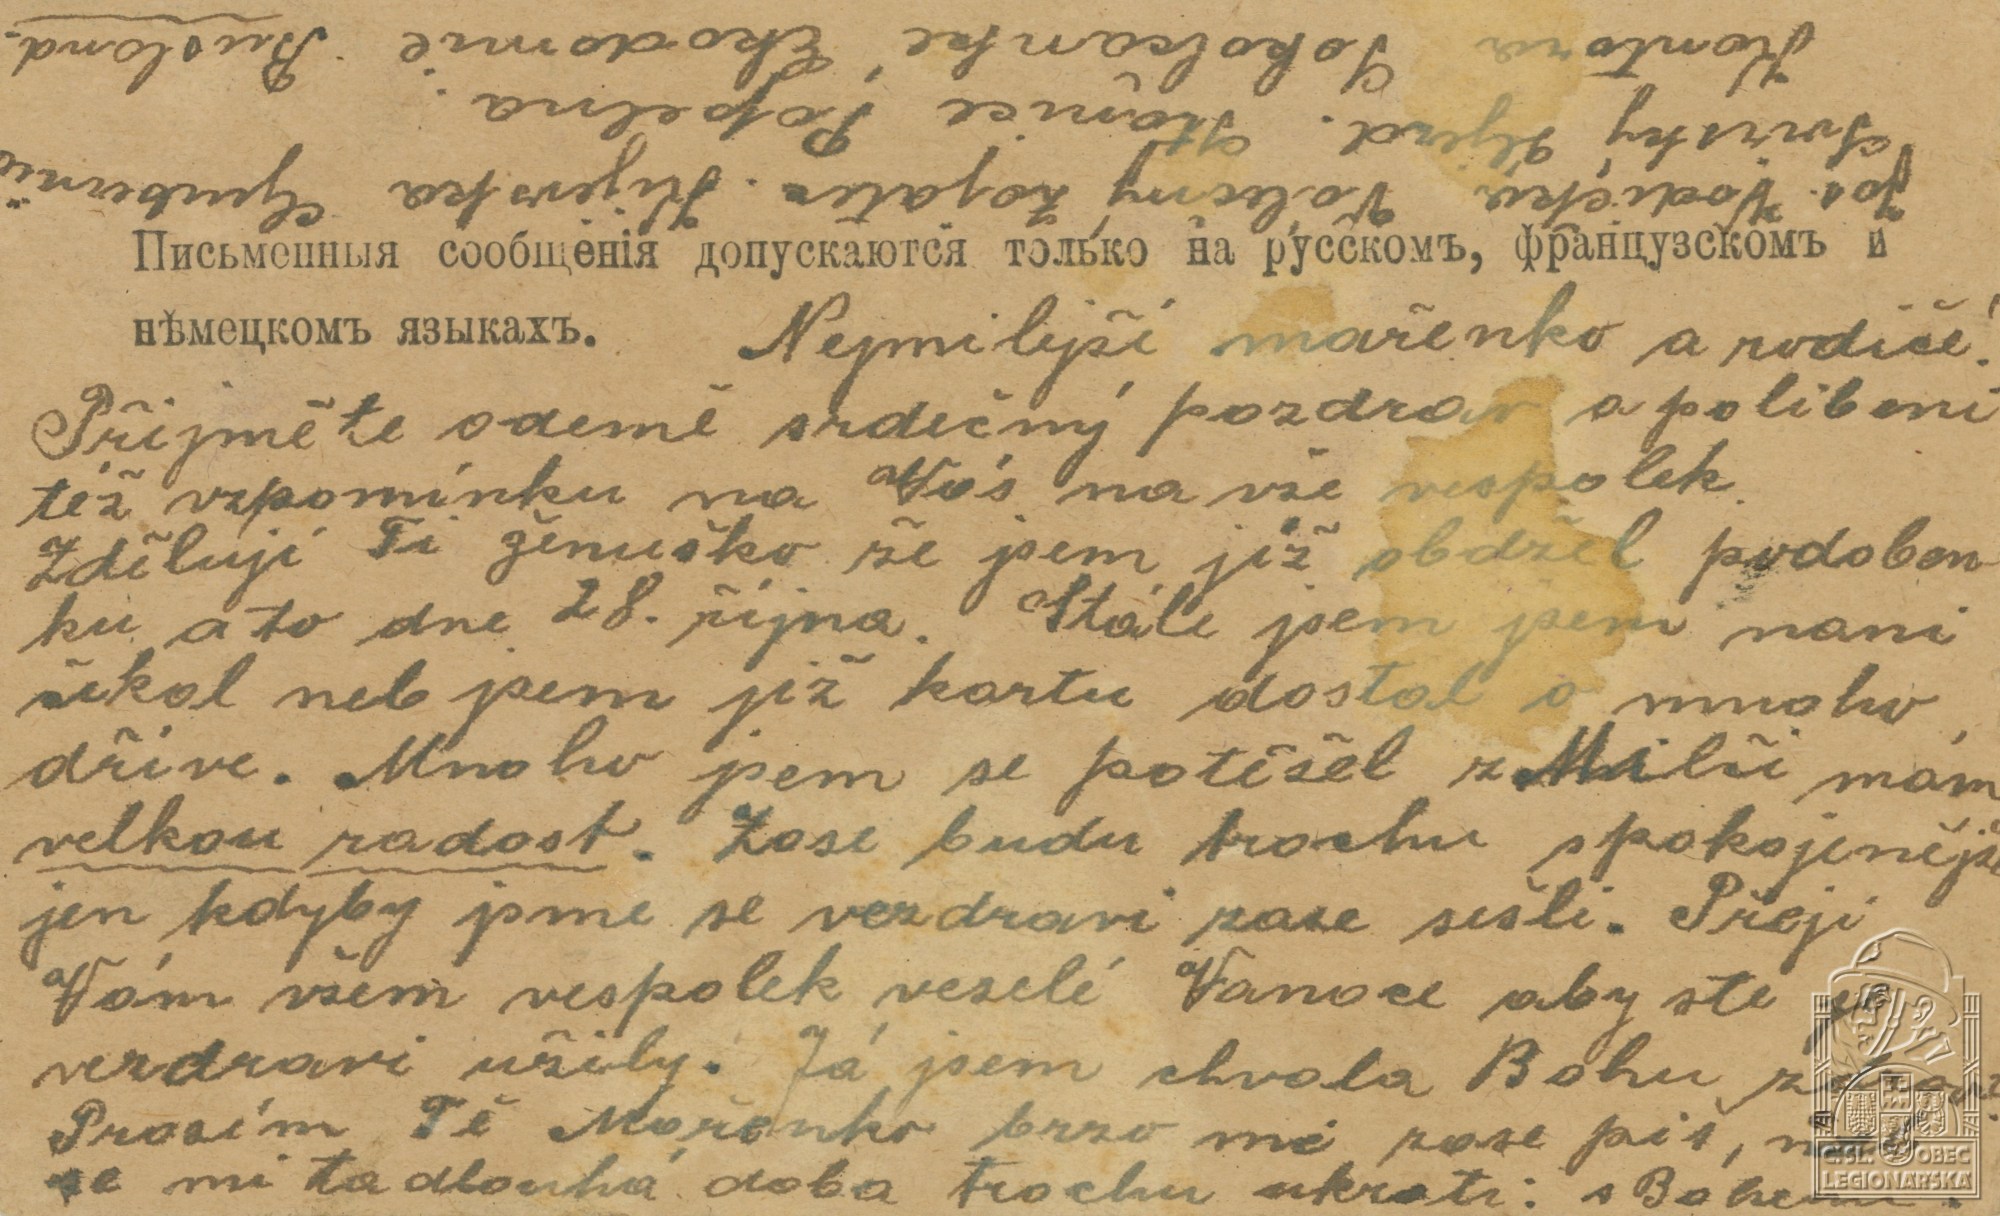 Jos. Vodička Válečný zajatec. Kijevska Gubernie
Svirsky Ujezd. Stanice Popelna
Kontora Rusland.
Письменныя сообщенія допускаются только на русскомъ, французскомъ и
нѣмецкомъ языкахъ. Nejmilejší mařenko a rodiče!
Přijměte odemě srdečný pozdrav a polibeni
též vzpomínku na Vás na vše vespolek.
Zděluji Ti ženuško že jsem již obdžel podoben
ku a to dne 28. října. Stále jsem jsem nani
čekal neb jsem již kartu dostal o mnoho
dříve. Mnoho jsem se potěšel z Milči mám
velkou radost. Zase budu trochu spokojenějši
jen kdyby jsme se vezdravi zase sešli. Přeji
Vám všem vespolek veselé Vanoce aby ste je
vezdravi užily. Já jsem chvala Bohu
Prosím Tě Mařenko brzo mi zase piš,
se mi ta dlouhá doba trochu ukrati: s Bohem.
Č.SL. OBEC
LEGIONÁŘSKÁ